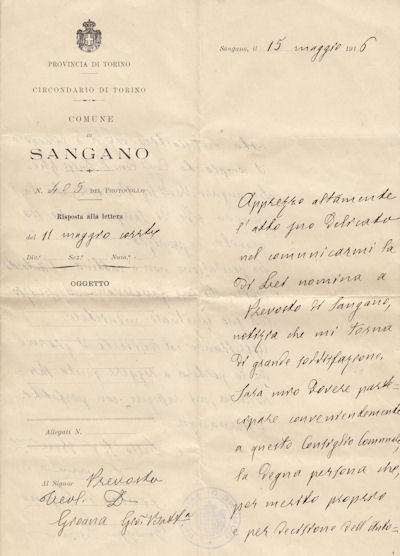 PROVINCIA DI TORINO
CIRCONDARIO DI TORINO
COMUNE
DI
SANGANO
N. 405 DEL PROTOCOLLO
Risposta alla lettera
del 11 maggio corrte
Div.e Sez.e Num.o
OGGETTO
Allegati N.
Al Signor Prevosto
Teol. D.
Sangano, il 15 maggio 1916
Apprezzo altamente
l'atto suo delicato
nel comunicarmi la
di Lei nomina a
Prevosto di Sangano,
notizia che mi torna
di grande soddisfazione.
Sarà mio dovere parte-
cipare convenientemente
a questo Consiglio Comunale,
la degna persona che,
per merito proprio
e per decisione dell'Auto-